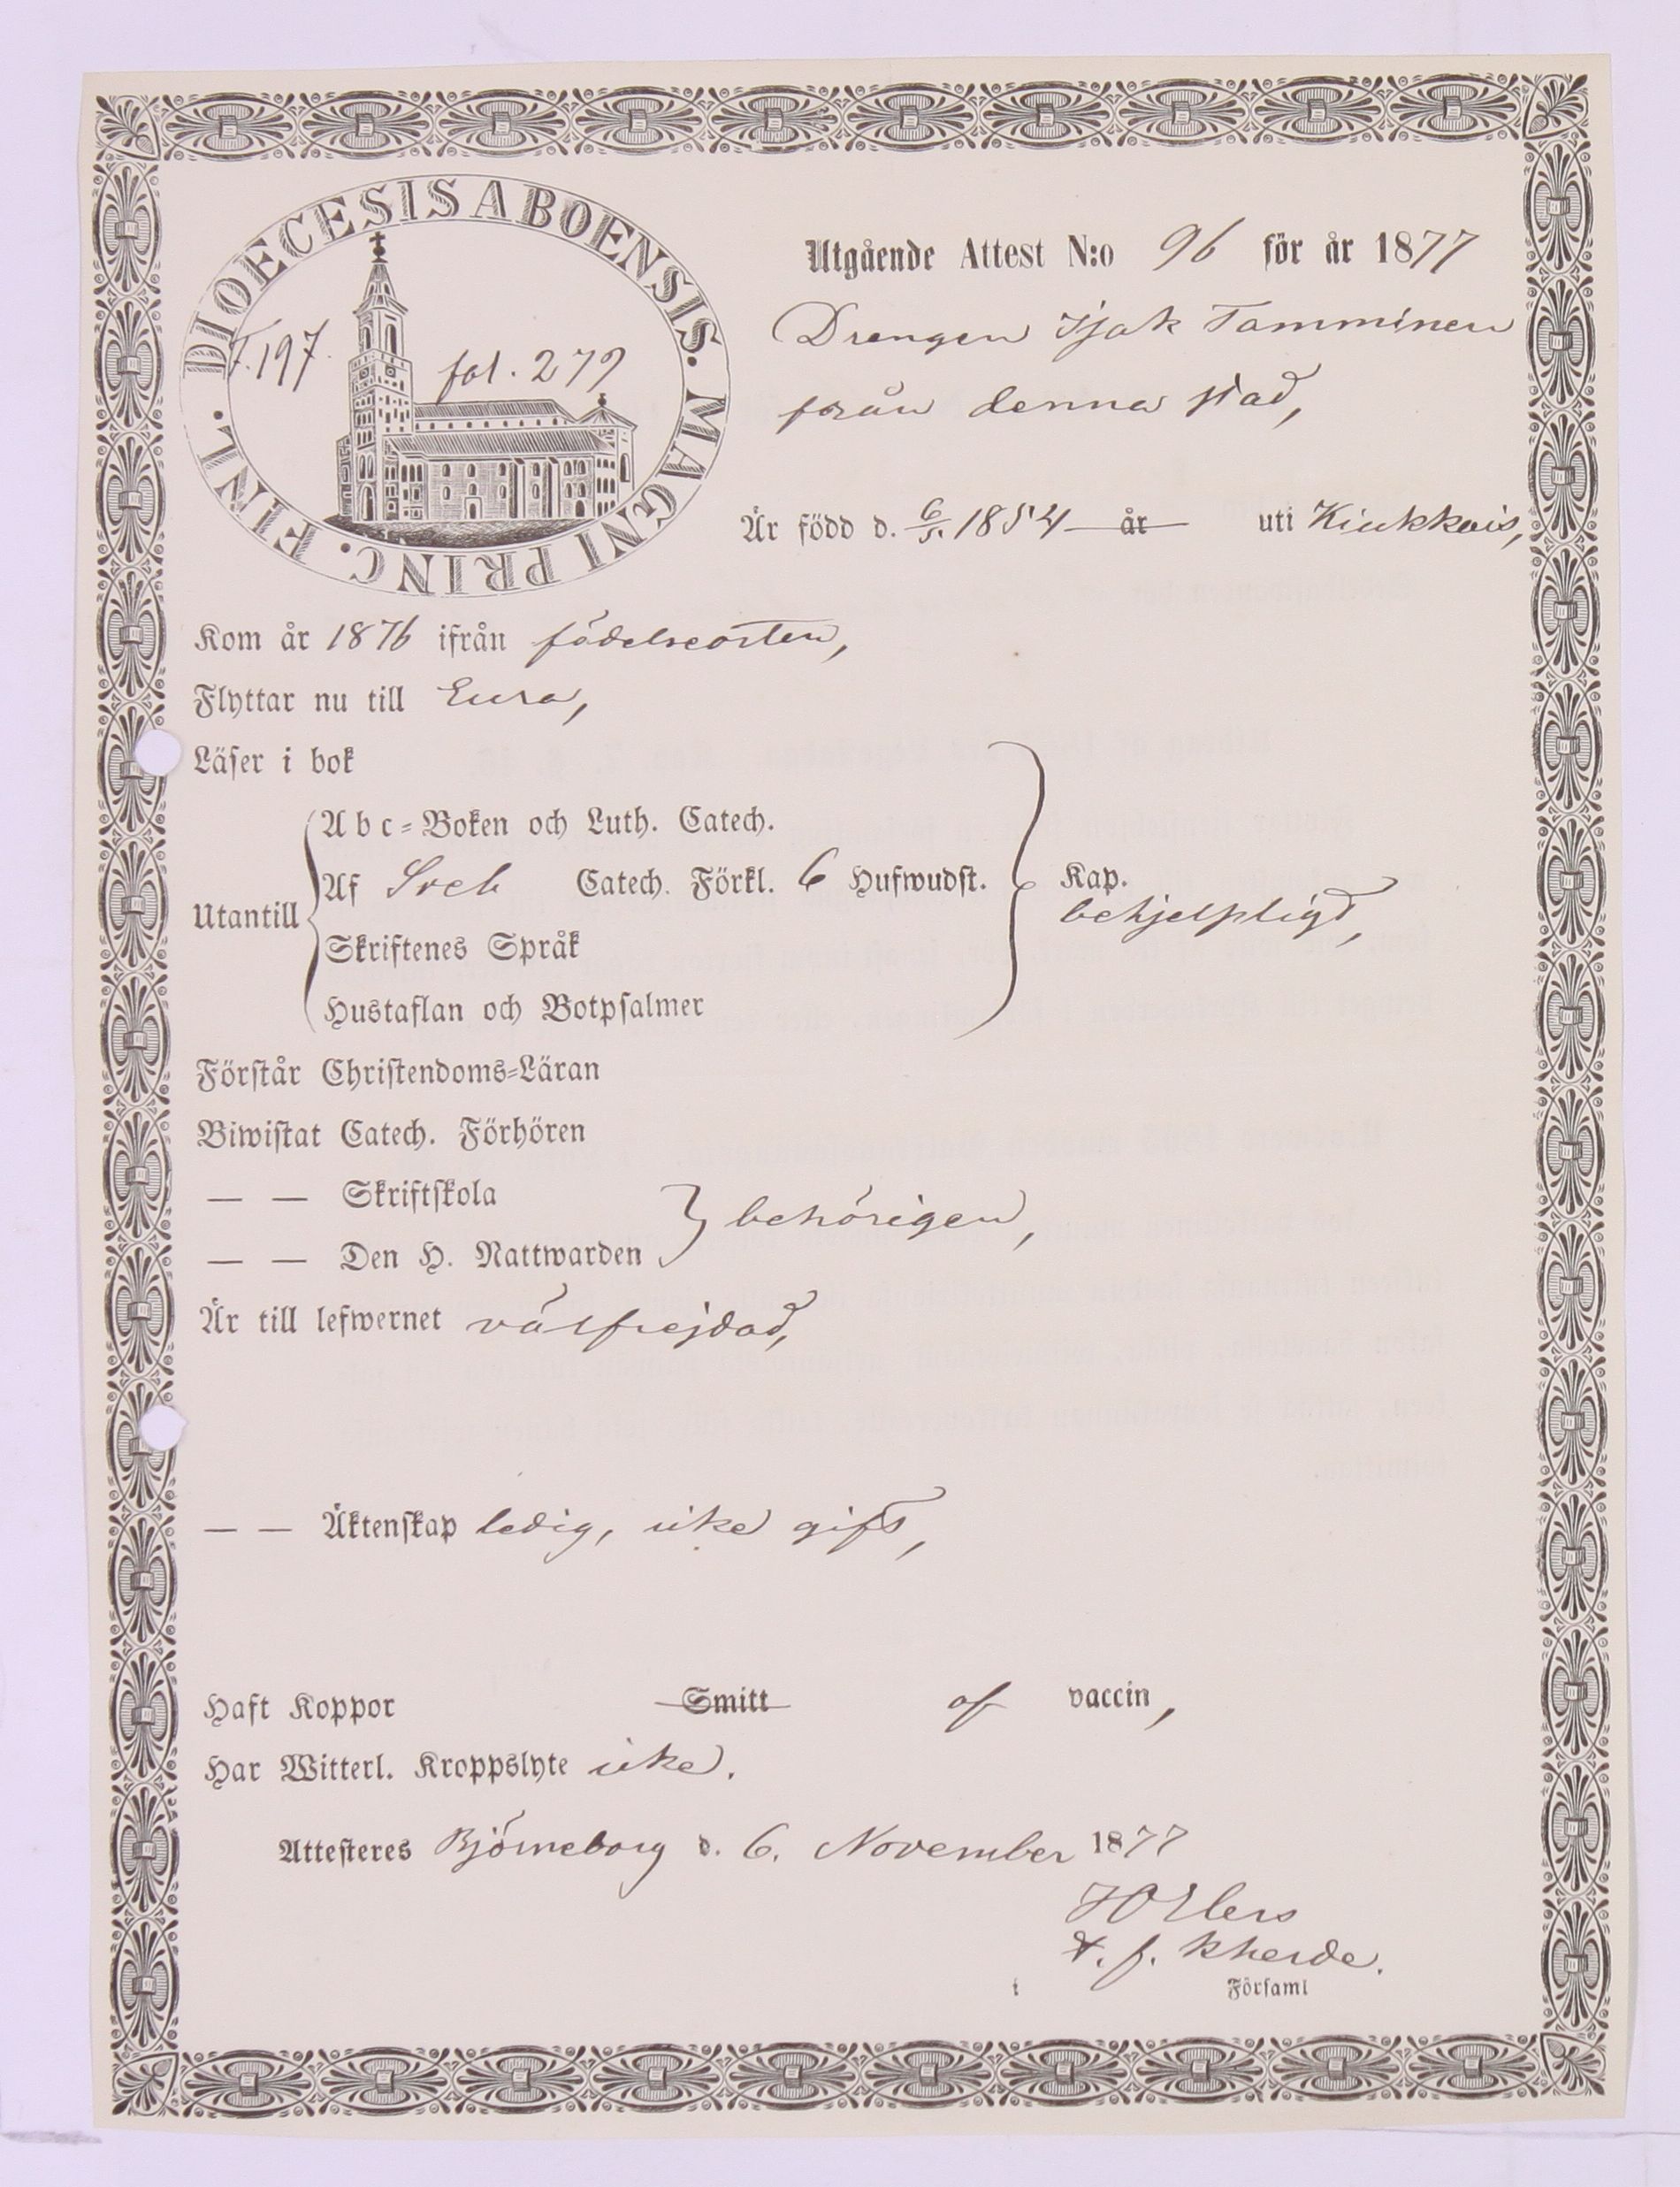 DIOECESIS ABOENSIS. MAGNI PRINC. FINL.
F. 197. fol. 279
Utgående Attest N:o 96 för år 1877
Drengen Isak Tamminen
från denna stad,
Är född d. 6/5. 1854 år uti Kiukkais,
Kom år 1876 ifrån födelseorten,
Flyttar nu till Eura,
Läser i bok
Abc-Boken och Luth. Catech.
Utantill Af Sveb Catech. Förkl. 6 Hufwudst. Kap.
behjelpligt,
Skriftenes Språk
Hustaflan och Botpsalmer
Förstår Christendoms-Läran
Biwistat Catech. Förhören
— — Skriftskola
behörigen,
— — Den H. Nattwarden
Är till lefwernet välfrejdad,
— — Äktenskap ledig, icke gift,
Haft Koppor Smitt af vaccin,
Har Witterl. Kroppslyte icke.
Attesteres Björneborg d. 6. November 1877
Elers
v. f. Kherde.
i Församl